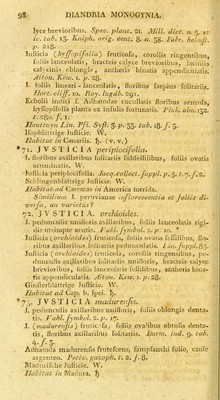 98 DIANDRIA MONOGYNIA.
lyce brevioribus. Spec. plant. 21. Mill. dict. n. 3. et
ic. tab. 13. Kalph. orig. cent. 8. n. 38. Fabr. helmst.
p. 218.
Justicia (hyssopifolia) fruticosa, corollis ringentibus,
foliis lanceolatis, bracteis calyce brevioribus, laciniis
calycinis oblongis, antheris binatis appendiculatis.
Aiton. Kew. 1. p. 28.
J. foliis lineari-lanceolatis, floribus saepius solitariis.
Hort. cliff. 10. Roy. lugdb. 291.
Ecbolii indici s. Adhatodae cucullatis floribus aemula,
hyssopifolia planta ex insulis fortunatis. Pluk. alm. 132.
t. 280. f. 1.
Houttuyn Lin. Pfl. Syst. 3. p. 33. tab. 18. f. 3.
Isopblättrige Justicie. W.
Habitat in Canariis. ♄. (v. v.)
*71. JVSTICIA periplocifolia.
J. floribus axillaribus solitariis subsessilibus, foliis ovatis
acuminatis. W.
Justicia periplocifolia. Jacq. collect. suppl. p. 5. t. 7. f. 2.
Schlingenblättrige Justicie. W.
Habitat ad Caraccas in America torrida.
Simillima J. peruvianae inflorescentia et foliis di-
versa, an varietas?
72. JVSTICIA orchioides.
J. pedunculis unifloris axillaribus, foliis lanceolatis rigi-
dis utrinque acutis. Vahl. symbol. 2. p. 10. *
Justicia (orchioides) fruticosa, foliis ovatis sessilibus, flo-
ribus axillaribus solitariis pedunculatis. Lin. suppl. 85.
Justicia (orchioides) fruticosa, corollis ringentibus, pe-
dunculis axillaribus solitariis unifloris, bracteis calyce
brevioribus, foliis lanceolatis sessilibus, antheris bina-
tis appendiculatis. Aiton. Kew. 1. p. 28.
Ginsterblättrige Justicie. W.
Habitat ad Cap. b. Spei. ♄.
*73. JVSTICIA madurensis.
J. pedunculis axillaribus unifloris, foliis oblongis denta-
tis. Vahl. symbol. 2. p. 17.
J. (madurensis) fruticosa, foliis ovalibus obtusis denta-
tis, floribus axillaribus solitariis. Burm. ind. 9. tab.
4. f. 3.
Adhatoda madurensis frutescens, sampsuchi folio, caule
argenteo. Petiv. gazoph. t. 2. f. 8.
Madurische Justicie. W.
Habitat in Madura. ♄